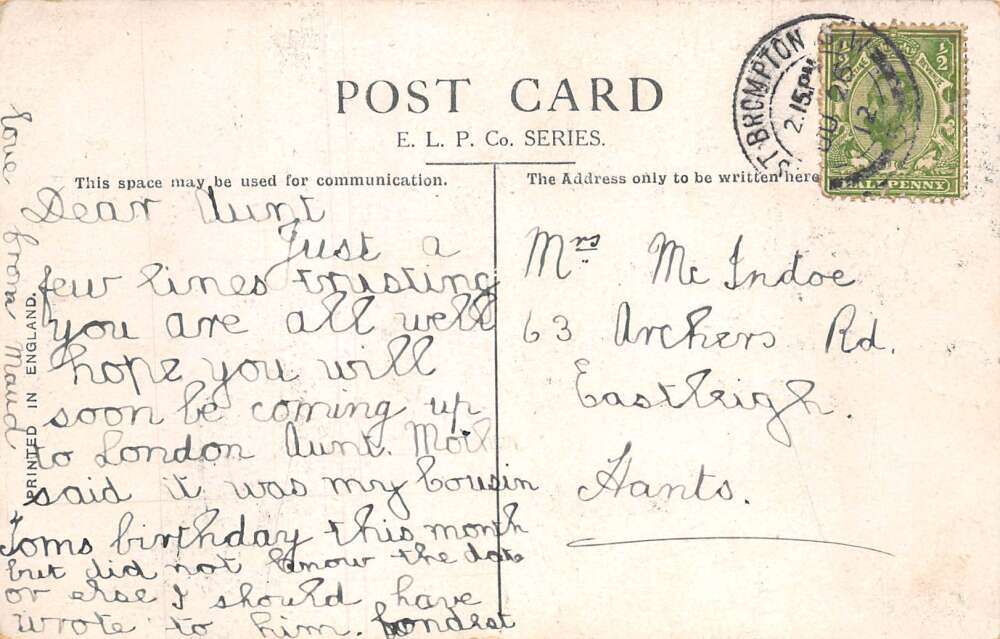 POST CARD
E. L. P. Co. SERIES.
This space may be used for communication.
The Address only to be written here
ST BROMPTON S.W.
2.15PM
26
12
1/2 1/2
REVENUE
HALF PENNY
Dear Aunt
Just a
few lines trusting
you are all well
hope you will
soon be coming up
to London Aunt. Mother
said it was my Cousin
Toms birthday this month
but did not know the date
or else I should have
wrote to him. fondest
love from Maud
PRINTED IN ENGLAND.
Mrs Mc Indoe
63 Archers Rd.
Eastleigh.
Hants.